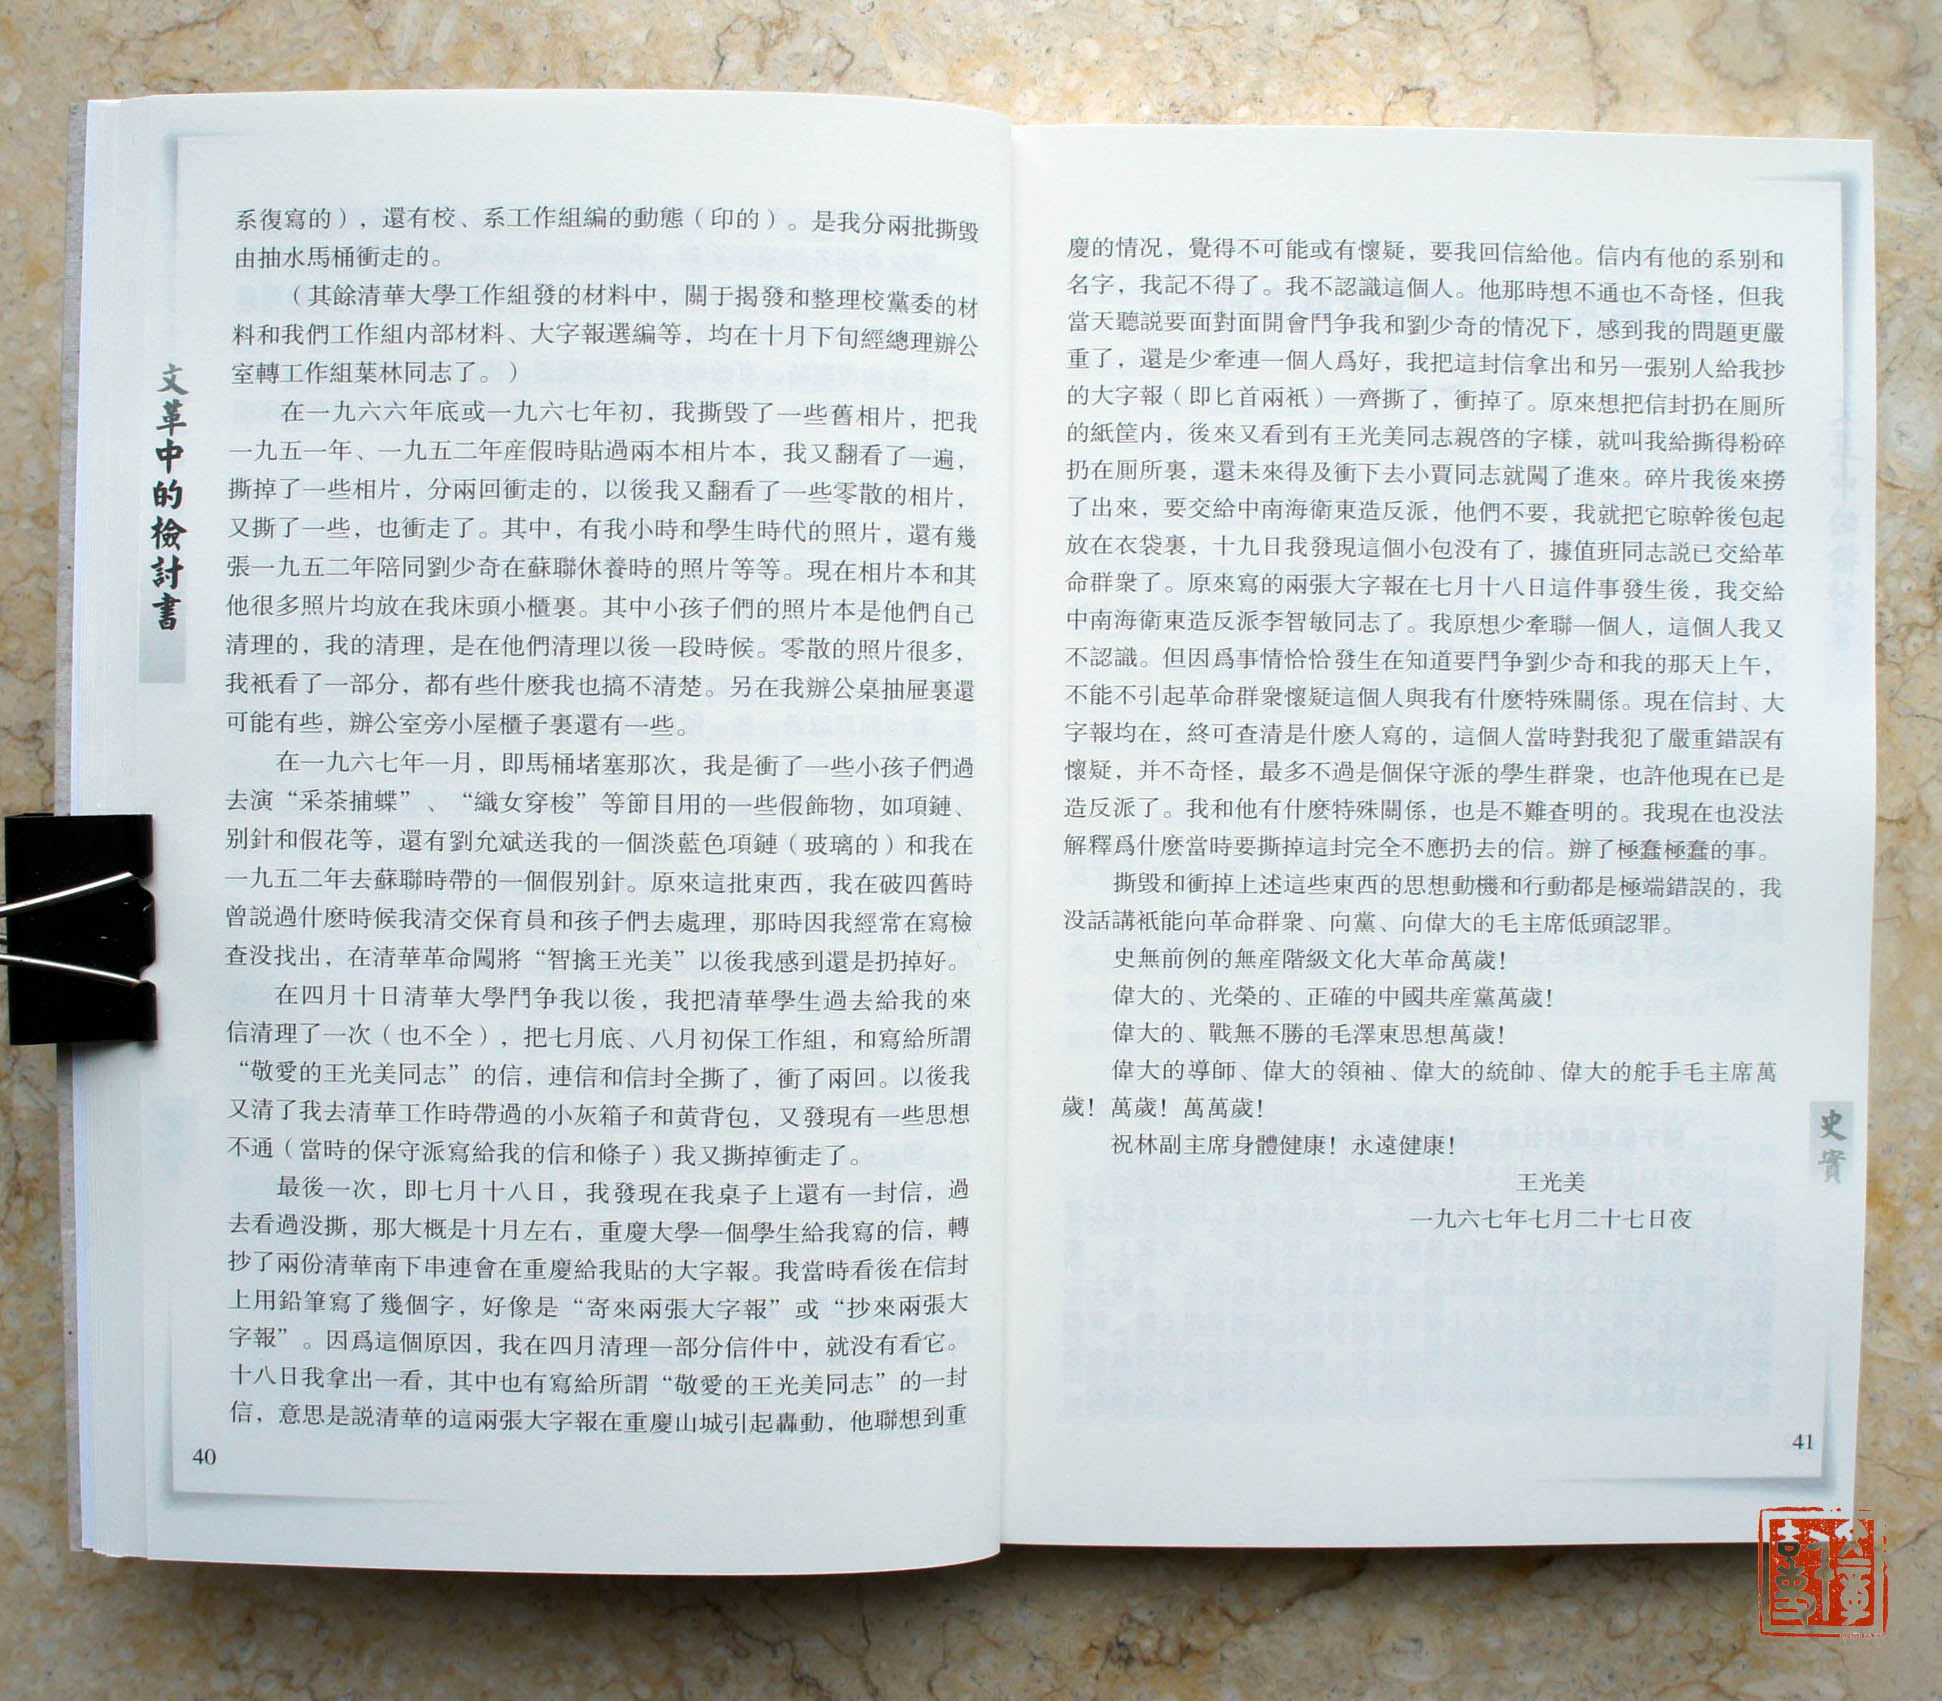 文革中的檢討書
系復寫的），還有校、系工作組編的動態（印的）。是我分兩批撕毀
由抽水馬桶衝走的。
（其餘清華大學工作組發的材料中，關于揭發和整理校黨委的材
料和我們工作組内部材料、大字報選編等，均在十月下旬經總理辦公
室轉工作組葉林同志了。）
在一九六六年底或一九六七年初，我撕毀了一些舊相片，把我
一九五一年、一九五二年産假時貼過兩本相片本，我又翻看了一遍，
撕掉了一些相片，分兩回衝走的，以後我又翻看了一些零散的相片，
又撕了一些，也衝走了。其中，有我小時和學生時代的照片，還有幾
張一九五二年陪同劉少奇在蘇聯休養時的照片等等。現在相片本和其
他很多照片均放在我床頭小櫃裏。其中小孩子們的照片本是他們自己
清理的，我的清理，是在他們清理以後一段時候。零散的照片很多，
我衹看了一部分，都有些什麽我也搞不清楚。另在我辦公桌抽屉裏還
可能有些，辦公室旁小屋櫃子裏還有一些。
在一九六七年一月，即馬桶堵塞那次，我是衝了一些小孩子們過
去演“采茶捕蝶”、“織女穿梭”等節目用的一些假飾物，如項鏈、
别針和假花等，還有劉允斌送我的一個淡藍色項鏈（玻璃的）和我在
一九五二年去蘇聯時帶的一個假别針。原來這批東西，我在破四舊時
曾説過什麽時候我清交保育員和孩子們去處理，那時因我經常在寫檢
查没找出，在清華革命闖將“智擒王光美”以後我感到還是扔掉好。
在四月十日清華大學鬥争我以後，我把清華學生過去給我的來
信清理了一次（也不全），把七月底、八月初保工作組，和寫給所謂
“敬愛的王光美同志”的信，連信和信封全撕了，衝了兩回。以後我
又清了我去清華工作時帶過的小灰箱子和黄背包，又發現有一些思想
不通（當時的保守派寫給我的信和條子）我又撕掉衝走了。
最後一次，即七月十八日，我發現在我桌子上還有一封信，過
去看過没撕，那大概是十月左右，重慶大學一個學生給我寫的信，轉
抄了兩份清華南下串連會在重慶給我貼的大字報。我當時看後在信封
上用鉛筆寫了幾個字，好像是“寄來兩張大字報”或“抄來兩張大
字報”。因爲這個原因，我在四月清理一部分信件中，就没有看它。
十八日我拿出一看，其中也有寫給所謂“敬愛的王光美同志”的一封
信，意思是説清華的這兩張大字報在重慶山城引起轟動，他聯想到重
40
慶的情况，覺得不可能或有懷疑，要我回信給他。信内有他的系别和
名字，我記不得了。我不認識這個人。他那時想不通也不奇怪，但我
當天聽説要面對面開會鬥争我和劉少奇的情况下，感到我的問題更嚴
重了，還是少牽連一個人爲好，我把這封信拿出和另一張别人給我抄
的大字報（即匕首兩衹）一齊撕了，衝掉了。原來想把信封扔在厠所
的紙筐内，後來又看到有王光美同志親啓的字樣，就叫我給撕得粉碎
扔在厠所裏，還未來得及衝下去小賈同志就闖了進來。碎片我後來撈
了出來，要交給中南海衛東造反派，他們不要，我就把它晾幹後包起
放在衣袋裏，十九日我發現這個小包没有了，據值班同志説已交給革
命群衆了。原來寫的兩張大字報在七月十八日這件事發生後，我交給
中南海衛東造反派李智敏同志了。我原想少牽聯一個人，這個人我又
不認識。但因爲事情恰恰發生在知道要鬥争劉少奇和我的那天上午，
不能不引起革命群衆懷疑這個人與我有什麽特殊關係。現在信封、大
字報均在，終可查清是什麽人寫的，這個人當時對我犯了嚴重錯誤有
懷疑，并不奇怪，最多不過是個保守派的學生群衆，也許他現在已是
造反派了。我和他有什麽特殊關係，也是不難查明的。我現在也没法
解釋爲什麽當時要撕掉這封完全不應扔去的信。辦了極蠢極蠢的事。
撕毀和衝掉上述這些東西的思想動機和行動都是極端錯誤的，我
没話講衹能向革命群衆、向黨、向偉大的毛主席低頭認罪。
史無前例的無産階級文化大革命萬歲！
偉大的、光榮的、正確的中國共産黨萬歲！
偉大的、戰無不勝的毛澤東思想萬歲！
偉大的導師、偉大的領袖、偉大的統帥、偉大的舵手毛主席萬
歲！萬歲！萬萬歲！
祝林副主席身體健康！永遠健康！
王光美
一九六七年七月二十七日夜
史實
41